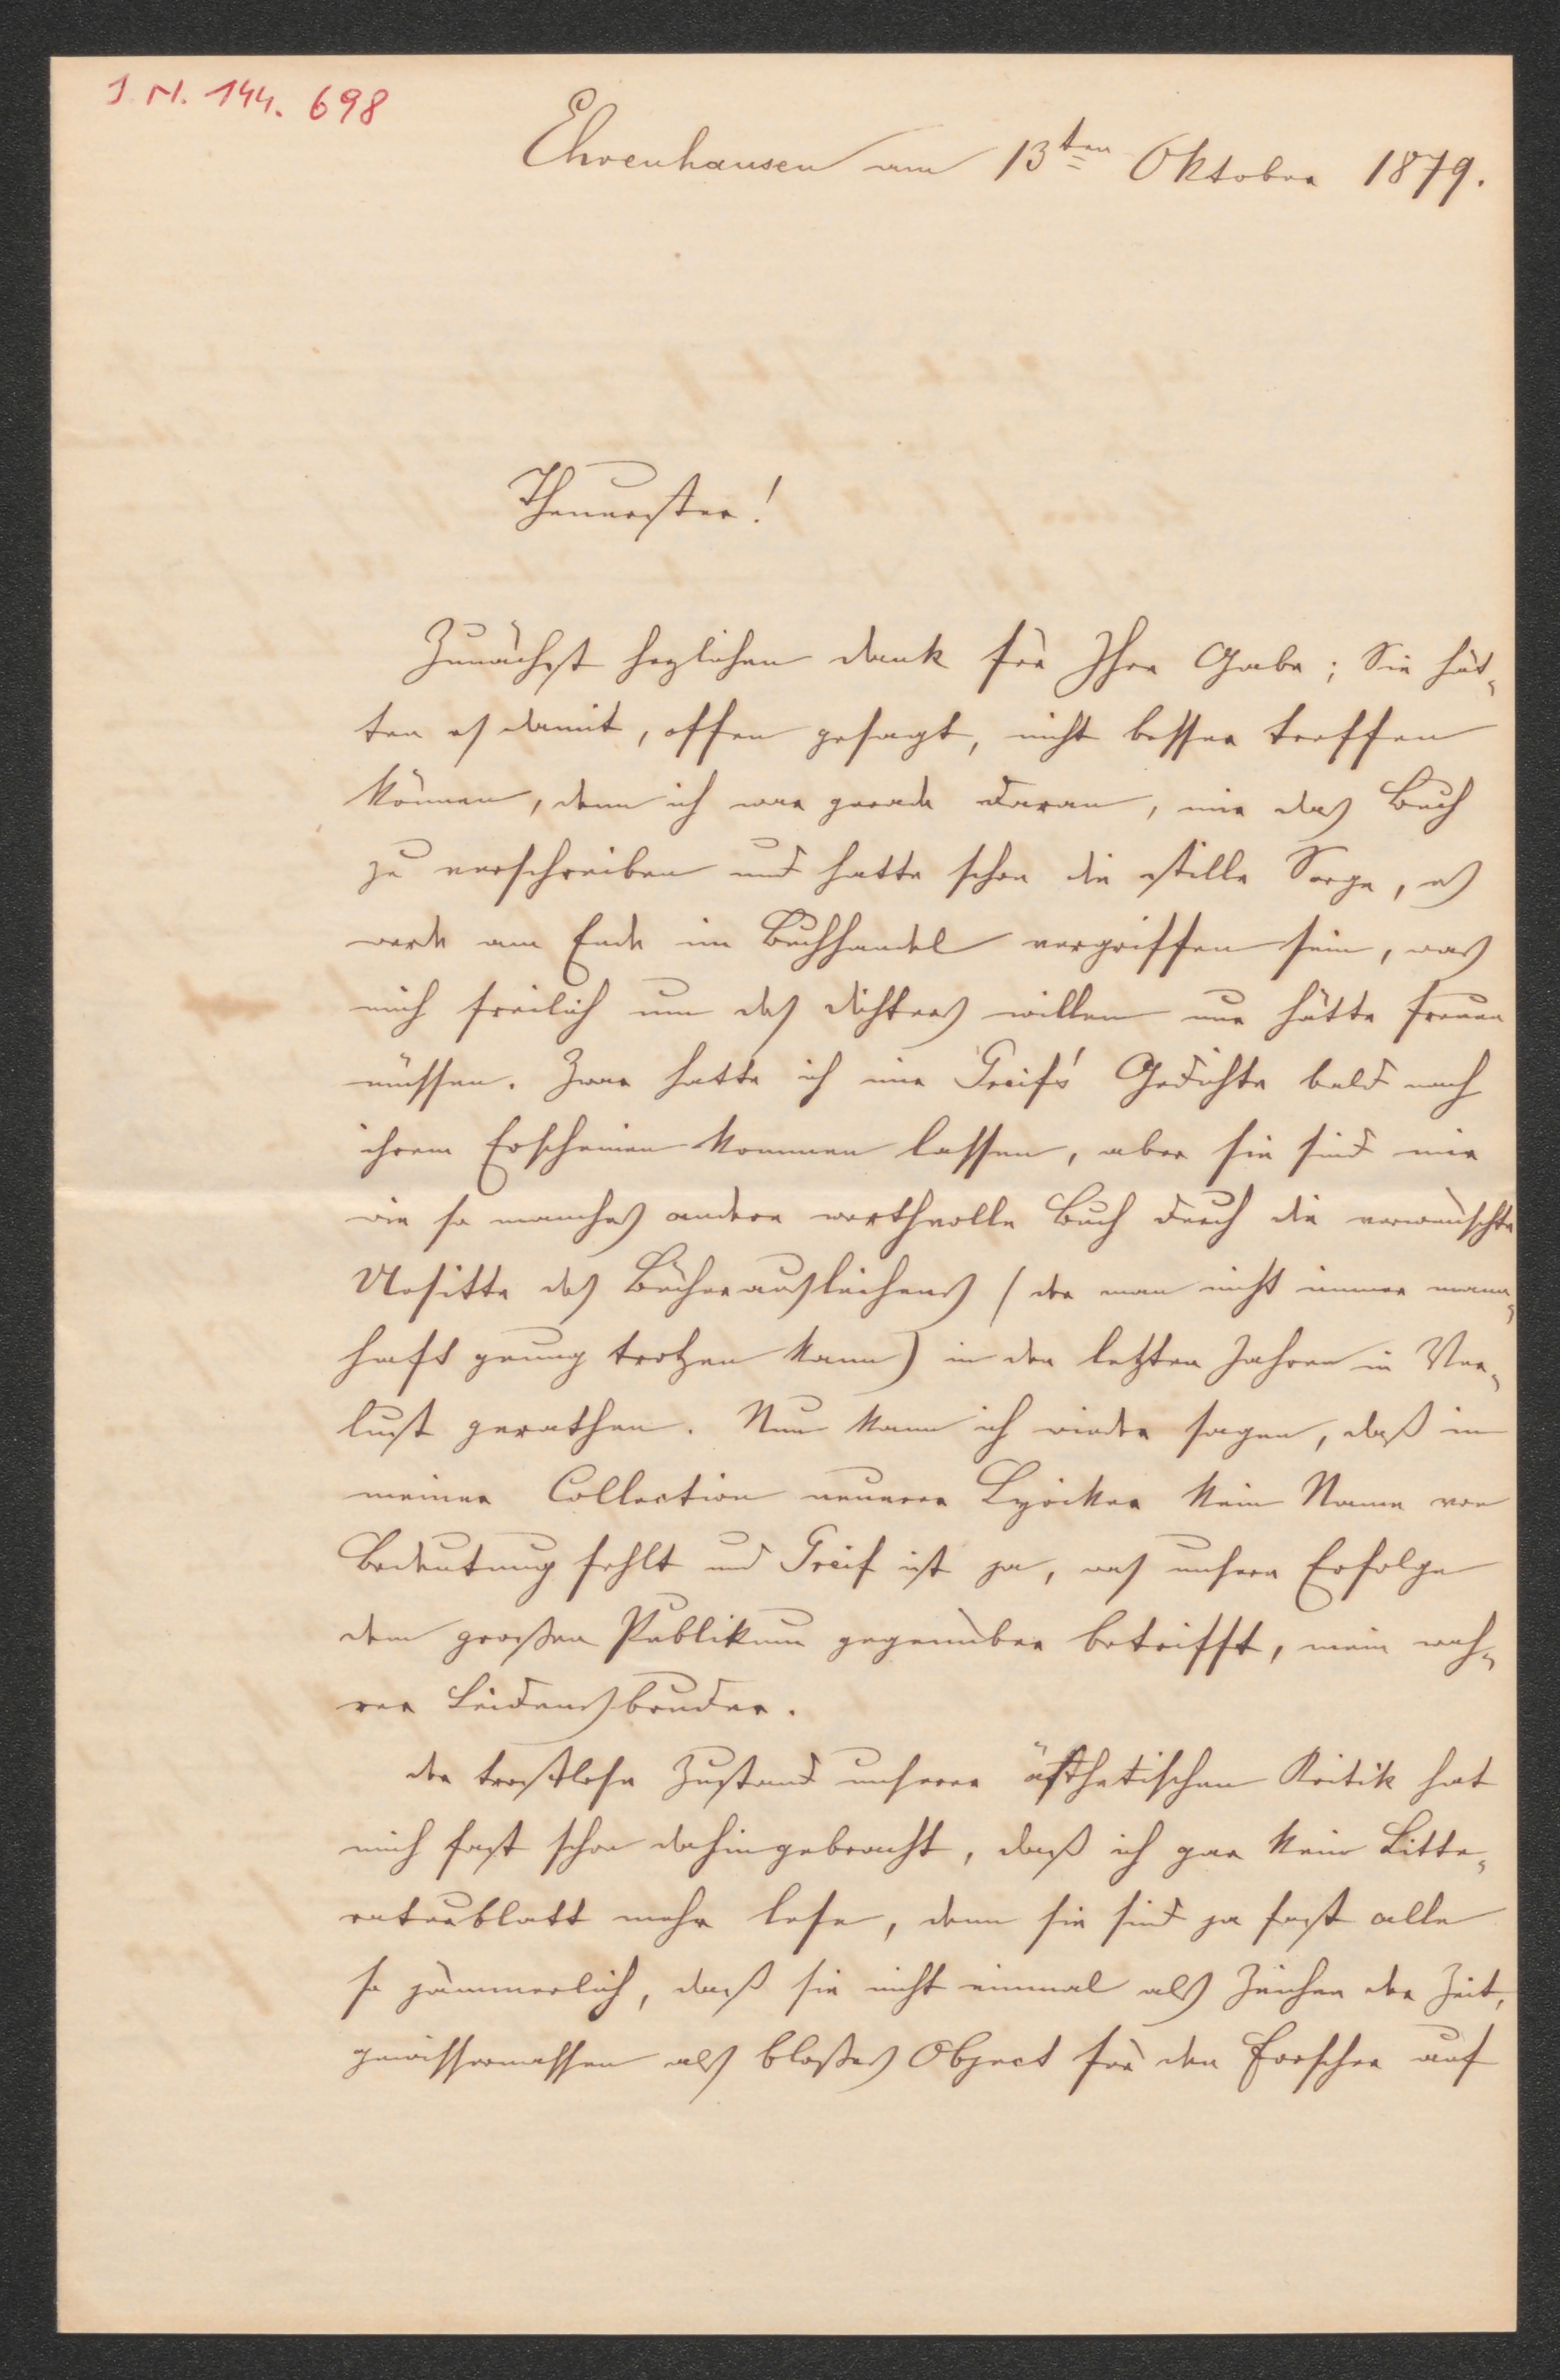 I. N. 144. 698
Ehrenhausen am 13ten Oktober 1879.
Theuerster!
Zunächst herzlichen Dank für Ihre Gabe; Sie hät-
ten es damit, offen gesagt, nicht besser treffen
können, denn ich war gerade daran, mir das Buch
zu verschreiben und hatte schon die stille Sorge, es
werde am Ende im Buchhandel vergriffen sein, was
mich freilich um des Dichters willen nur hätte freuen
müssen. Zwar hatte ich mir Greif's Gedichte bald nach
ihrem Erscheinen kommen lassen, aber sie sind mir
wie so manches andere werthvolle Buch durch die verwünschte
Unsitte des Bücherausleihens (der man nicht immer mann-
haft genug trotzen kann) in den letzten Jahren in Ver-
lust gerathen. Nun kann ich wieder sagen, daß in
meiner Collection neuerer Lyriker kein Name von
Bedeutung fehlt und Greif ist ja, was unsere Erfolge
dem großen Publikum gegenüber betrifft, mein wah-
rer Leidensbruder.
Der trostlose Zustand unserer ästhetischen Kritik hat
mich fast schon dahingebracht, daß ich gar kein Litte-
raturblatt mehr lese, denn sie sind ja fast alle
so jämmerlich, daß sie nicht einmal als Zeichen der Zeit,
gewissermassen als bloßes Object für den Forscher auf